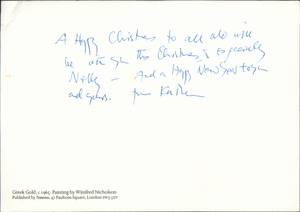 A Happy Christmas to all who will
be with you this Christmas, & especially
And a Happy New Year to you
and yours. from
Greek Gold, c 1965 Painting by Winifred Nicholson
Published by Nassau, 47 Paultons Square, London SW3 5DT